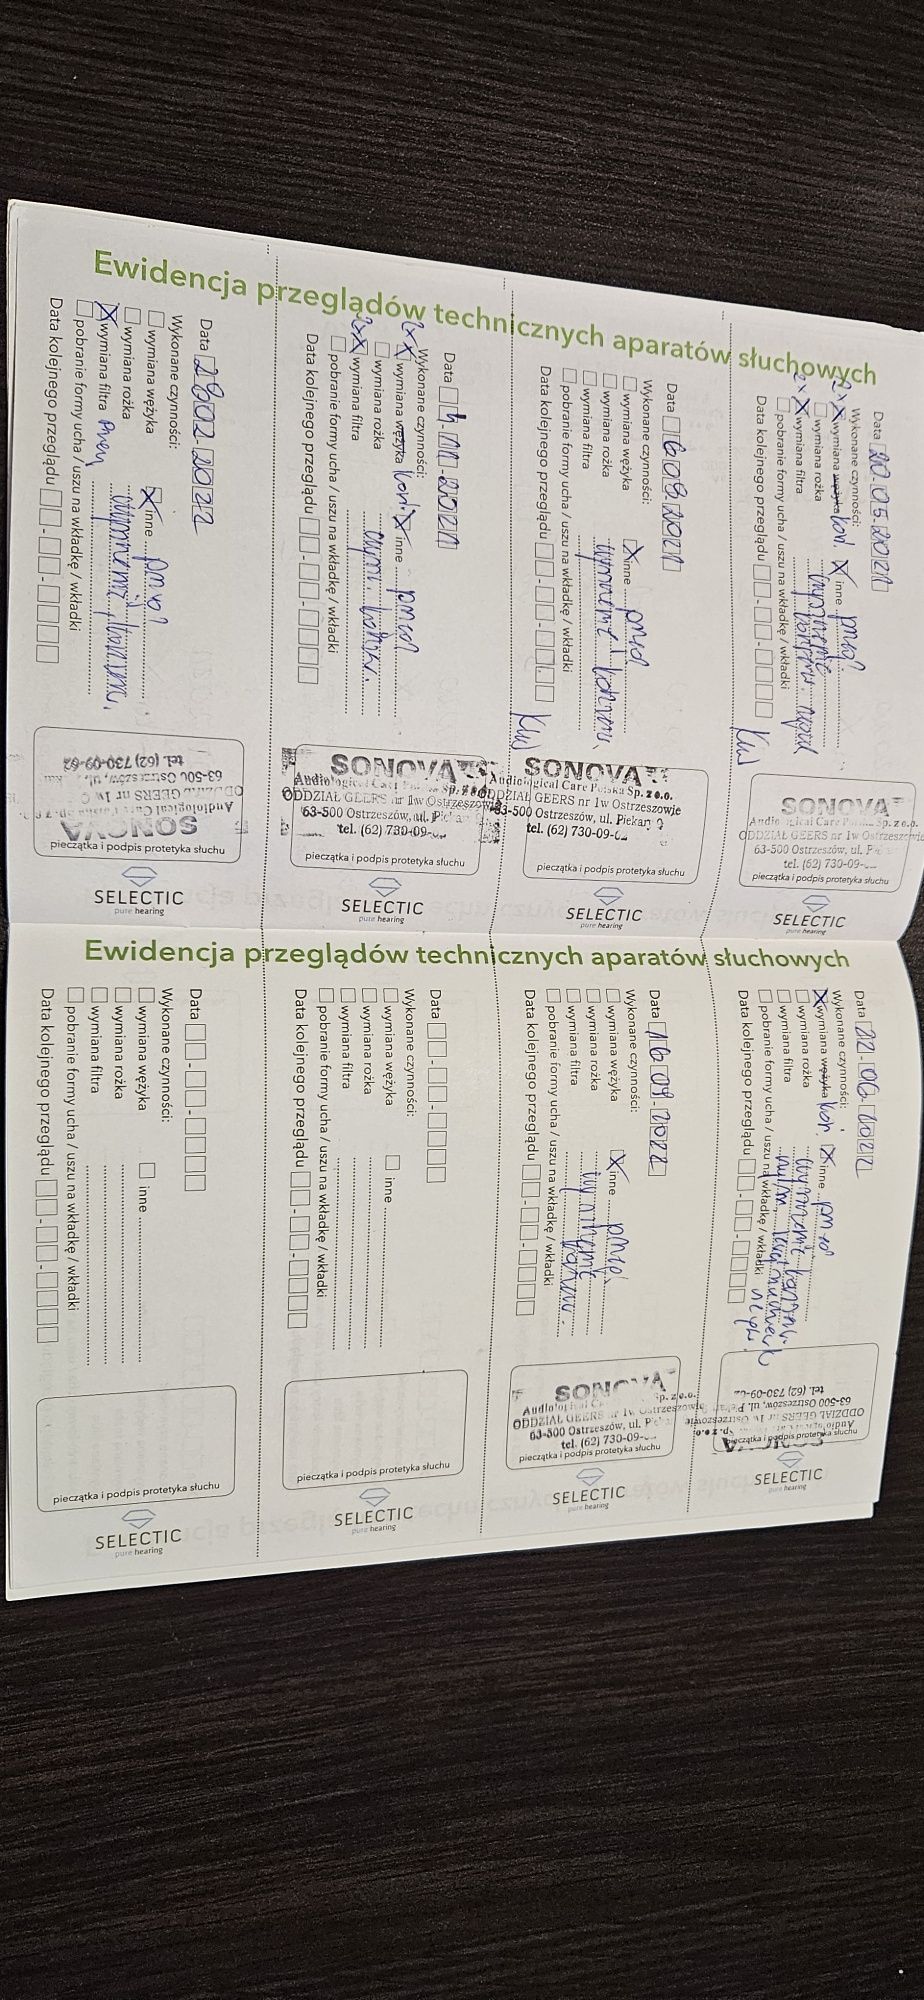 Ewidencja przeglądów technicznych aparatów słuchowych
Data 20.05.2021
Wykonane czynności:
2x X wymiana wężyka X inne
wymiana rożka
2x X wymiana filtra
pobranie formy ucha / uszu na wkładkę / wkładki
Data kolejnego przeglądu
SONOVA
Sp. z o.o.
ODDZIAŁ GEERS nr 1w Ostrzeszowie
63-500 Ostrzeszów, ul.
tel. (62) 730-09-
pieczątka i podpis protetyka słuchu
SELECTIC
pure hearing
Data 6 09 2021
Wykonane czynności:
wymiana wężyka X inne
wymiana rożka
wymiana filtra
pobranie formy ucha / uszu na wkładkę / wkładki
Data kolejnego przeglądu
SONOVA
Audiological Care Polska Sp. z o.o.
ODDZIAŁ GEERS nr 1w Ostrzeszowie
63-500 Ostrzeszów, ul. Piekary
tel. (62) 730-09-
pieczątka i podpis protetyka słuchu
SELECTIC
pure hearing
Data 4.11.2021
Wykonane czynności:
2x X wymiana wężyka X inne
wymiana rożka
2x X wymiana filtra
pobranie formy ucha / uszu na wkładkę / wkładki
Data kolejnego przeglądu
SONOVA
Audiological Sp. z o.o.
ODDZIAŁ GEERS nr 1w Ostrzeszowie
63-500 Ostrzeszów, ul.
tel. (62) 730-09-
pieczątka i podpis protetyka słuchu
SELECTIC
pure hearing
Data 28 02 2022
Wykonane czynności:
wymiana wężyka X inne
wymiana rożka
X wymiana filtra
pobranie formy ucha / uszu na wkładkę / wkładki
Data kolejnego przeglądu
SONOVA
Audiological
GEERS nr 1w
63-500 Ostrzeszów, ul.
tel. (62) 730-09-62
pieczątka i podpis protetyka słuchu
SELECTIC
pure hearing
Ewidencja przeglądów technicznych aparatów słuchowych
Data 22.06.2022
Wykonane czynności:
X wymiana wężyka X inne
wymiana rożka
wymiana filtra
pobranie formy ucha / uszu na wkładkę / wkładki
Data kolejnego przeglądu
SONOVA
Sp. z o.o.
ODDZIAŁ GEERS nr 1w Ostrzeszowie
63-500 Ostrzeszów, ul.
tel. (62) 730-09-62
pieczątka i podpis protetyka słuchu
SELECTIC
pure hearing
Data 16 09.2022
Wykonane czynności:
wymiana wężyka X inne
wymiana rożka
wymiana filtra
pobranie formy ucha / uszu na wkładkę / wkładki
Data kolejnego przeglądu
SONOVA
Sp. z o.o.
ODDZIAŁ GEERS nr 1w Ostrzeszowie
63-500 Ostrzeszów, ul.
tel. (62) 730-09-
pieczątka i podpis protetyka słuchu
SELECTIC
pure hearing
Data
Wykonane czynności:
wymiana wężyka inne
wymiana rożka
wymiana filtra
pobranie formy ucha / uszu na wkładkę / wkładki
Data kolejnego przeglądu
pieczątka i podpis protetyka słuchu
SELECTIC
pure hearing
Data
Wykonane czynności:
wymiana wężyka inne
wymiana rożka
wymiana filtra
pobranie formy ucha / uszu na wkładkę / wkładki
Data kolejnego przeglądu
pieczątka i podpis protetyka słuchu
SELECTIC
pure hearing